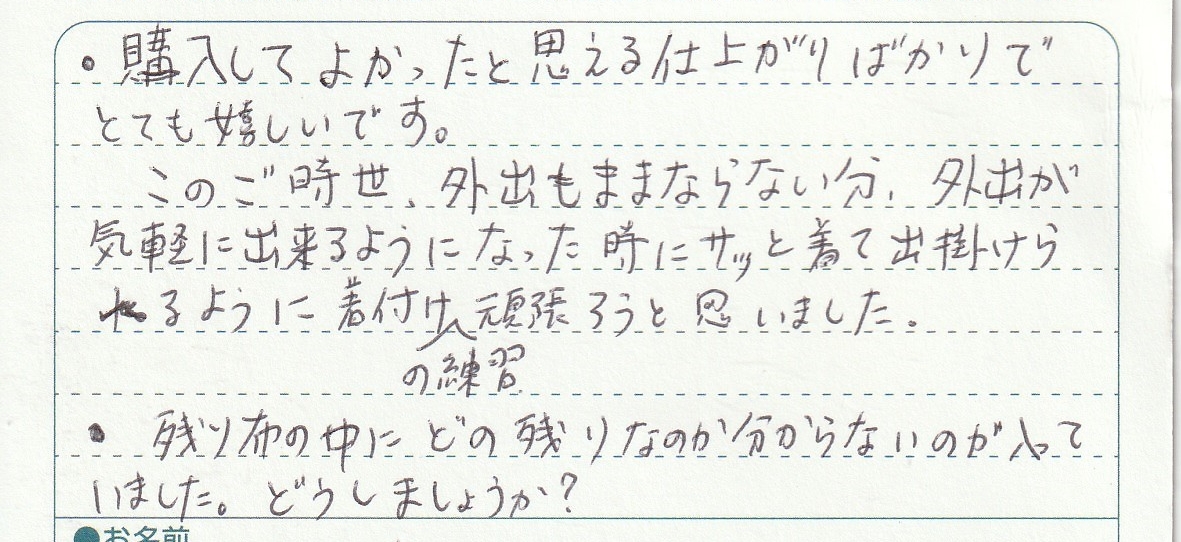 ・購入してよかったと思える仕上がりばかりで
とても嬉しいです。
このご時世、外出もままならない分、外出が
気軽に出来るようになった時にサッと着て出掛けら
れるように着付け頑張ろうと思いました。
の練習
・残り布の中にどの残りなのか分からないのが入って
いました。どうしましょうか?
●お名前